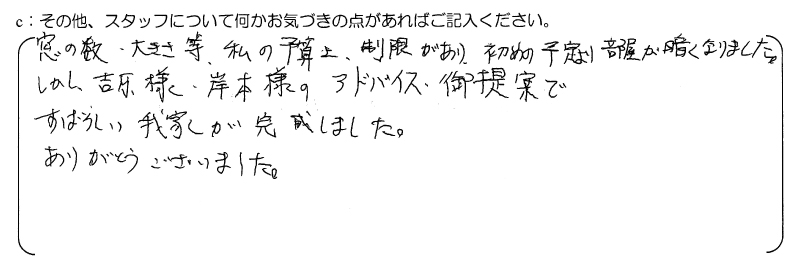 c：その他、スタッフについて何かお気づきの点があればご記入ください。
窓の数・大きさ等、私の予算上、制限があり、初めの予定より部屋が暗くなりました。
しかし、吉乐様と・岸本様のアドバイス・御提案で
すばらしい我家しが完成しました。
ありがとうございました。